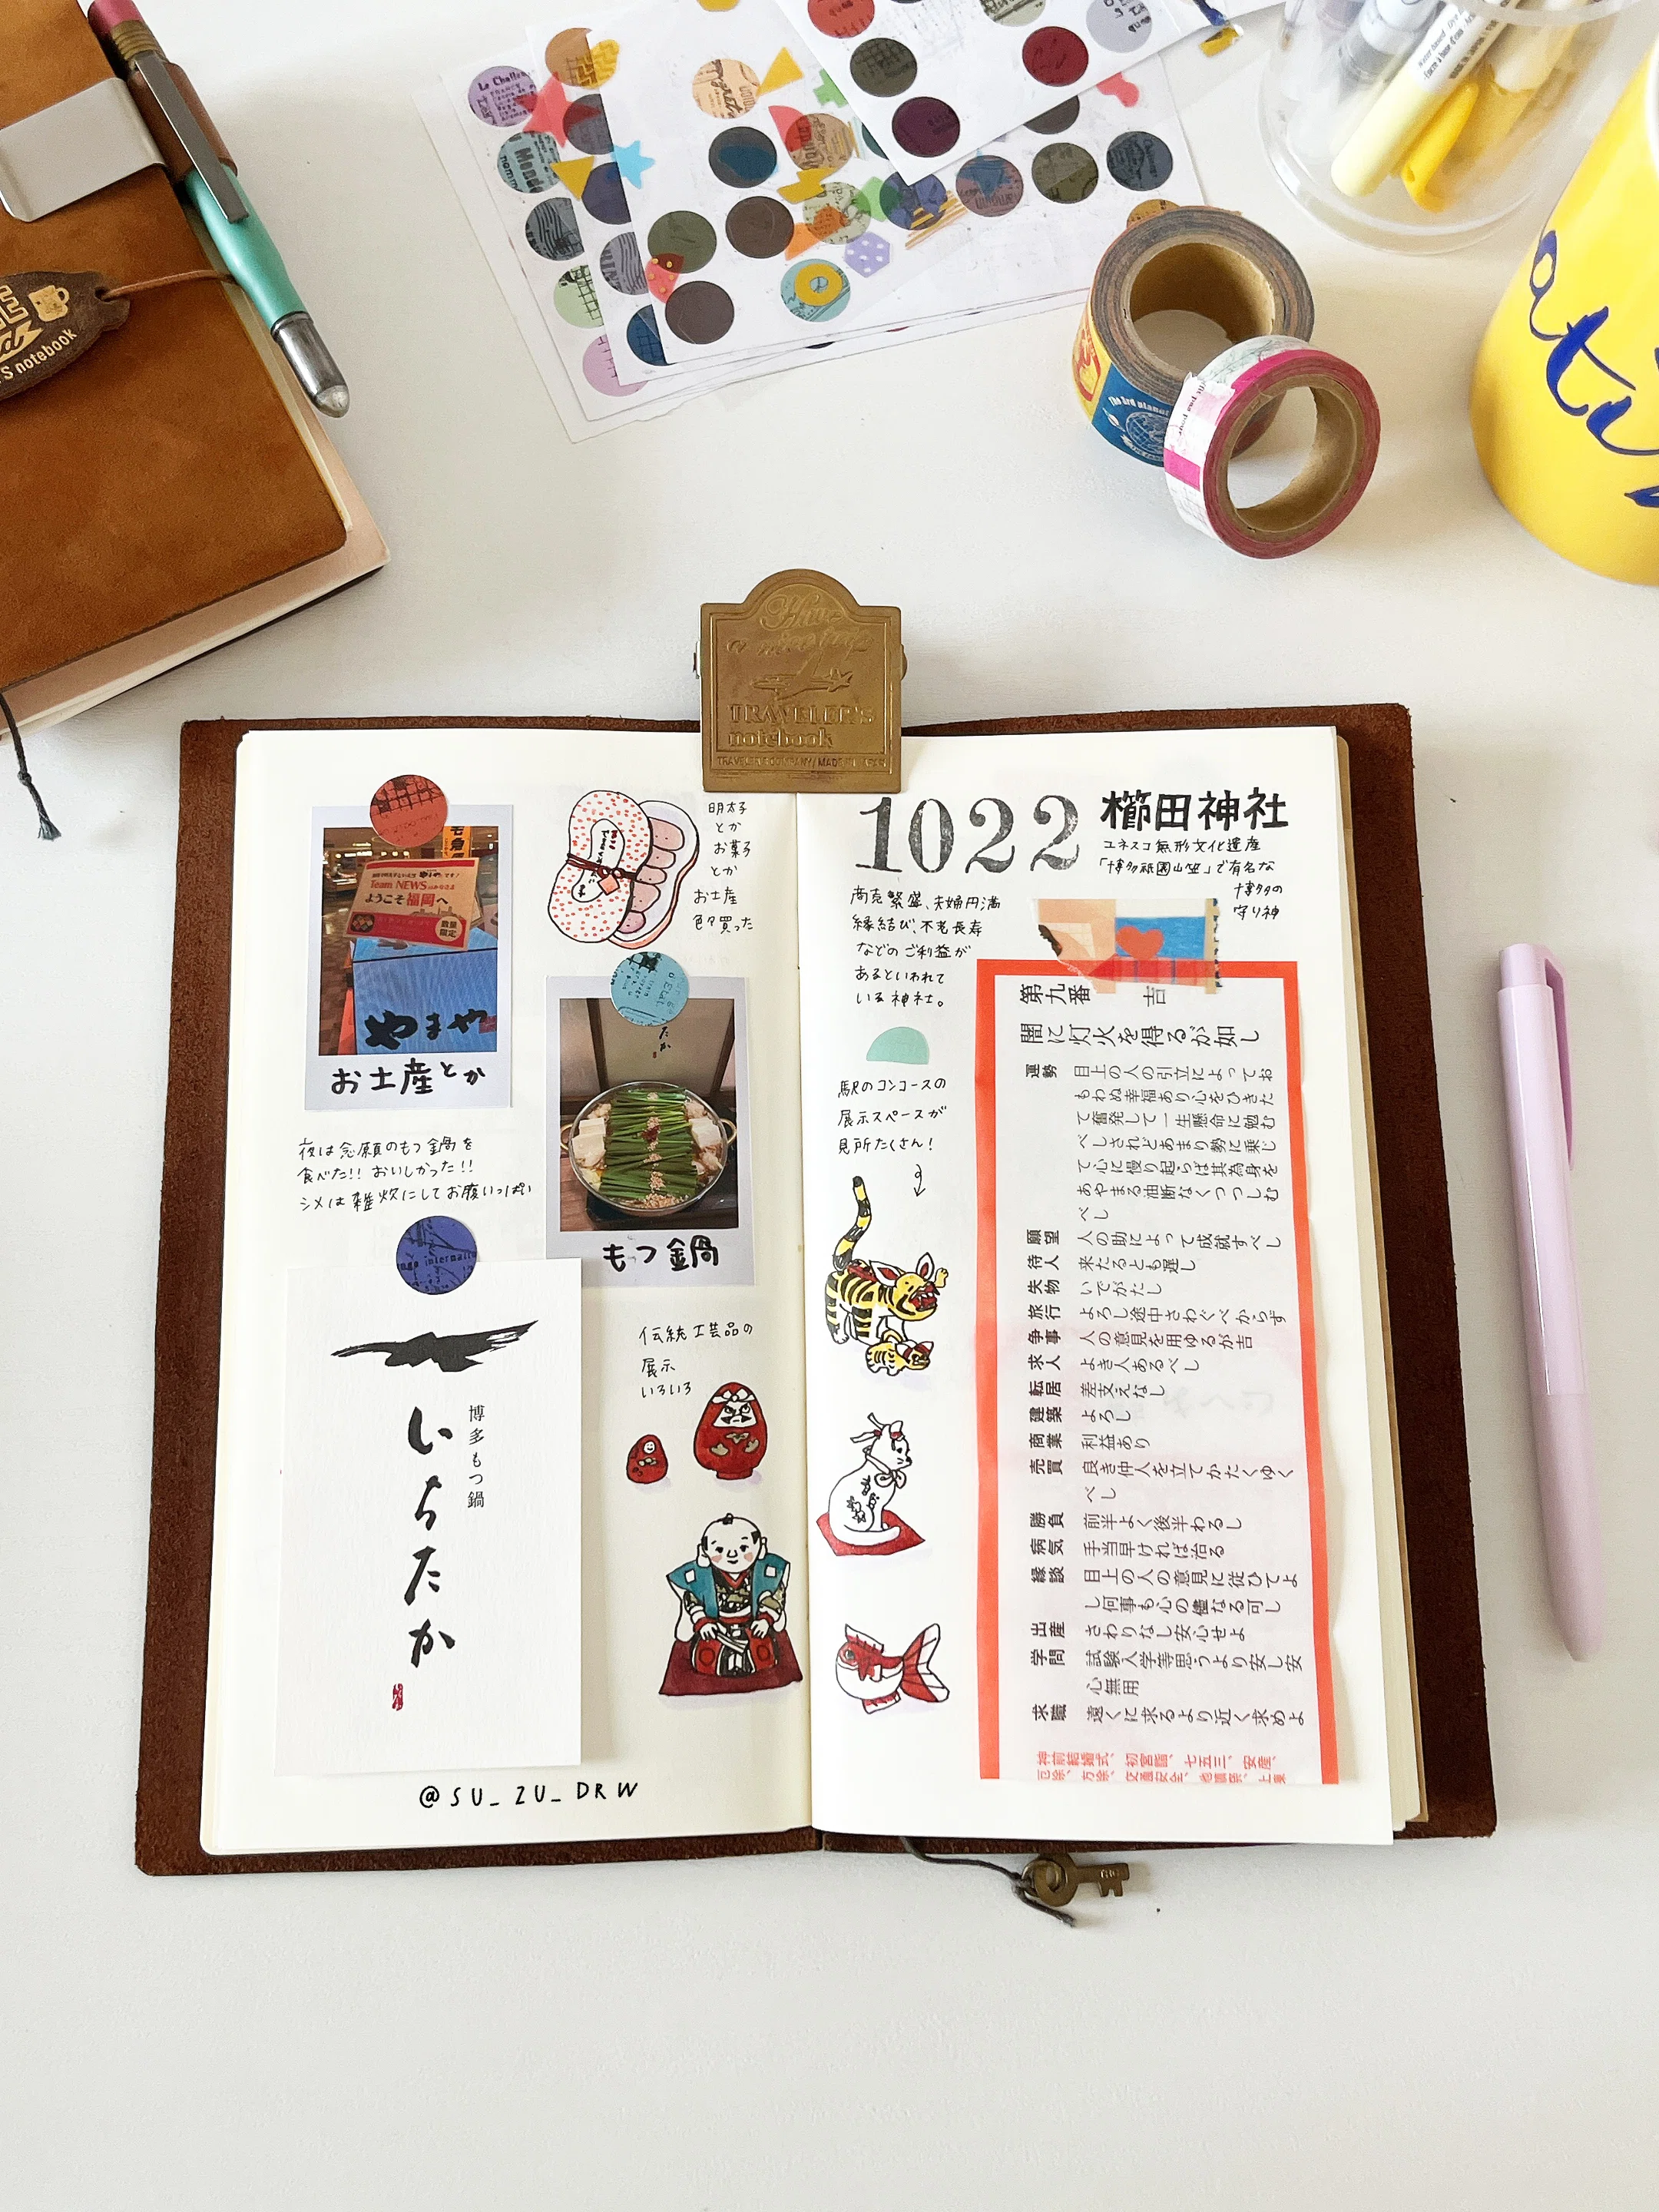 TRAVELER'S
notebook
TRAVELER'S COMPANY/MADE IN JAPAN
S notebook
Have
a nice trip
Team NEWS
ようこそ福岡へ
数量
限定
やまや
お土産とか
明太子
とか
お菓子
とか
お土産
色々買った
夜は念願のもつ鍋を
食べた!! おいしかった!!
シメは雑炊にしてお腹いっぱい
もつ鍋
博多もつ鍋
いちたか
伝統工芸品の
展示
いろいろ
@SU_ZU_DRW
1022
櫛田神社
ユネスコ無形文化遺産
「博多祇園山笠」で有名な
博多の
守り神
商売繁盛、夫婦円満
縁結び、不老長寿
などのご利益が
あるといわれて
いる神社。
駅のコンコースの
展示スペースが
見所たくさん!
第九番 吉
闇に灯火を得るが如し
運勢 目上の人の引立によってお
もわぬ幸福あり心をひきた
て奮発して一生懸命に勉む
べしされどあまり勢に乗じ
て心に慢り起らば其為身を
あやまる油断なくつつしむ
べし
願望 人の助によって成就すべし
待人 来たるとも遅し
失物 いでがたし
旅行 よろし途中さわぐべからず
争事 人の意見を用ゆるが吉
求人 よき人あるべし
転居 差支えなし
建築 よろし
商業 利益あり
売買 良き仲人を立てかたくゆく
べし
勝負 前半よく後半わるし
病気 手当早ければ治る
縁談 目上の人の意見に従ひてよ
し何事も心の儘なる可し
出産 さわりなし安心せよ
学問 試験入学等思うより安し安
心無用
求職 遠くに求るより近く求めよ
神前結婚式、初宮詣、七五三、安産、
厄除、方除、交通安全、地鎮祭、上棟